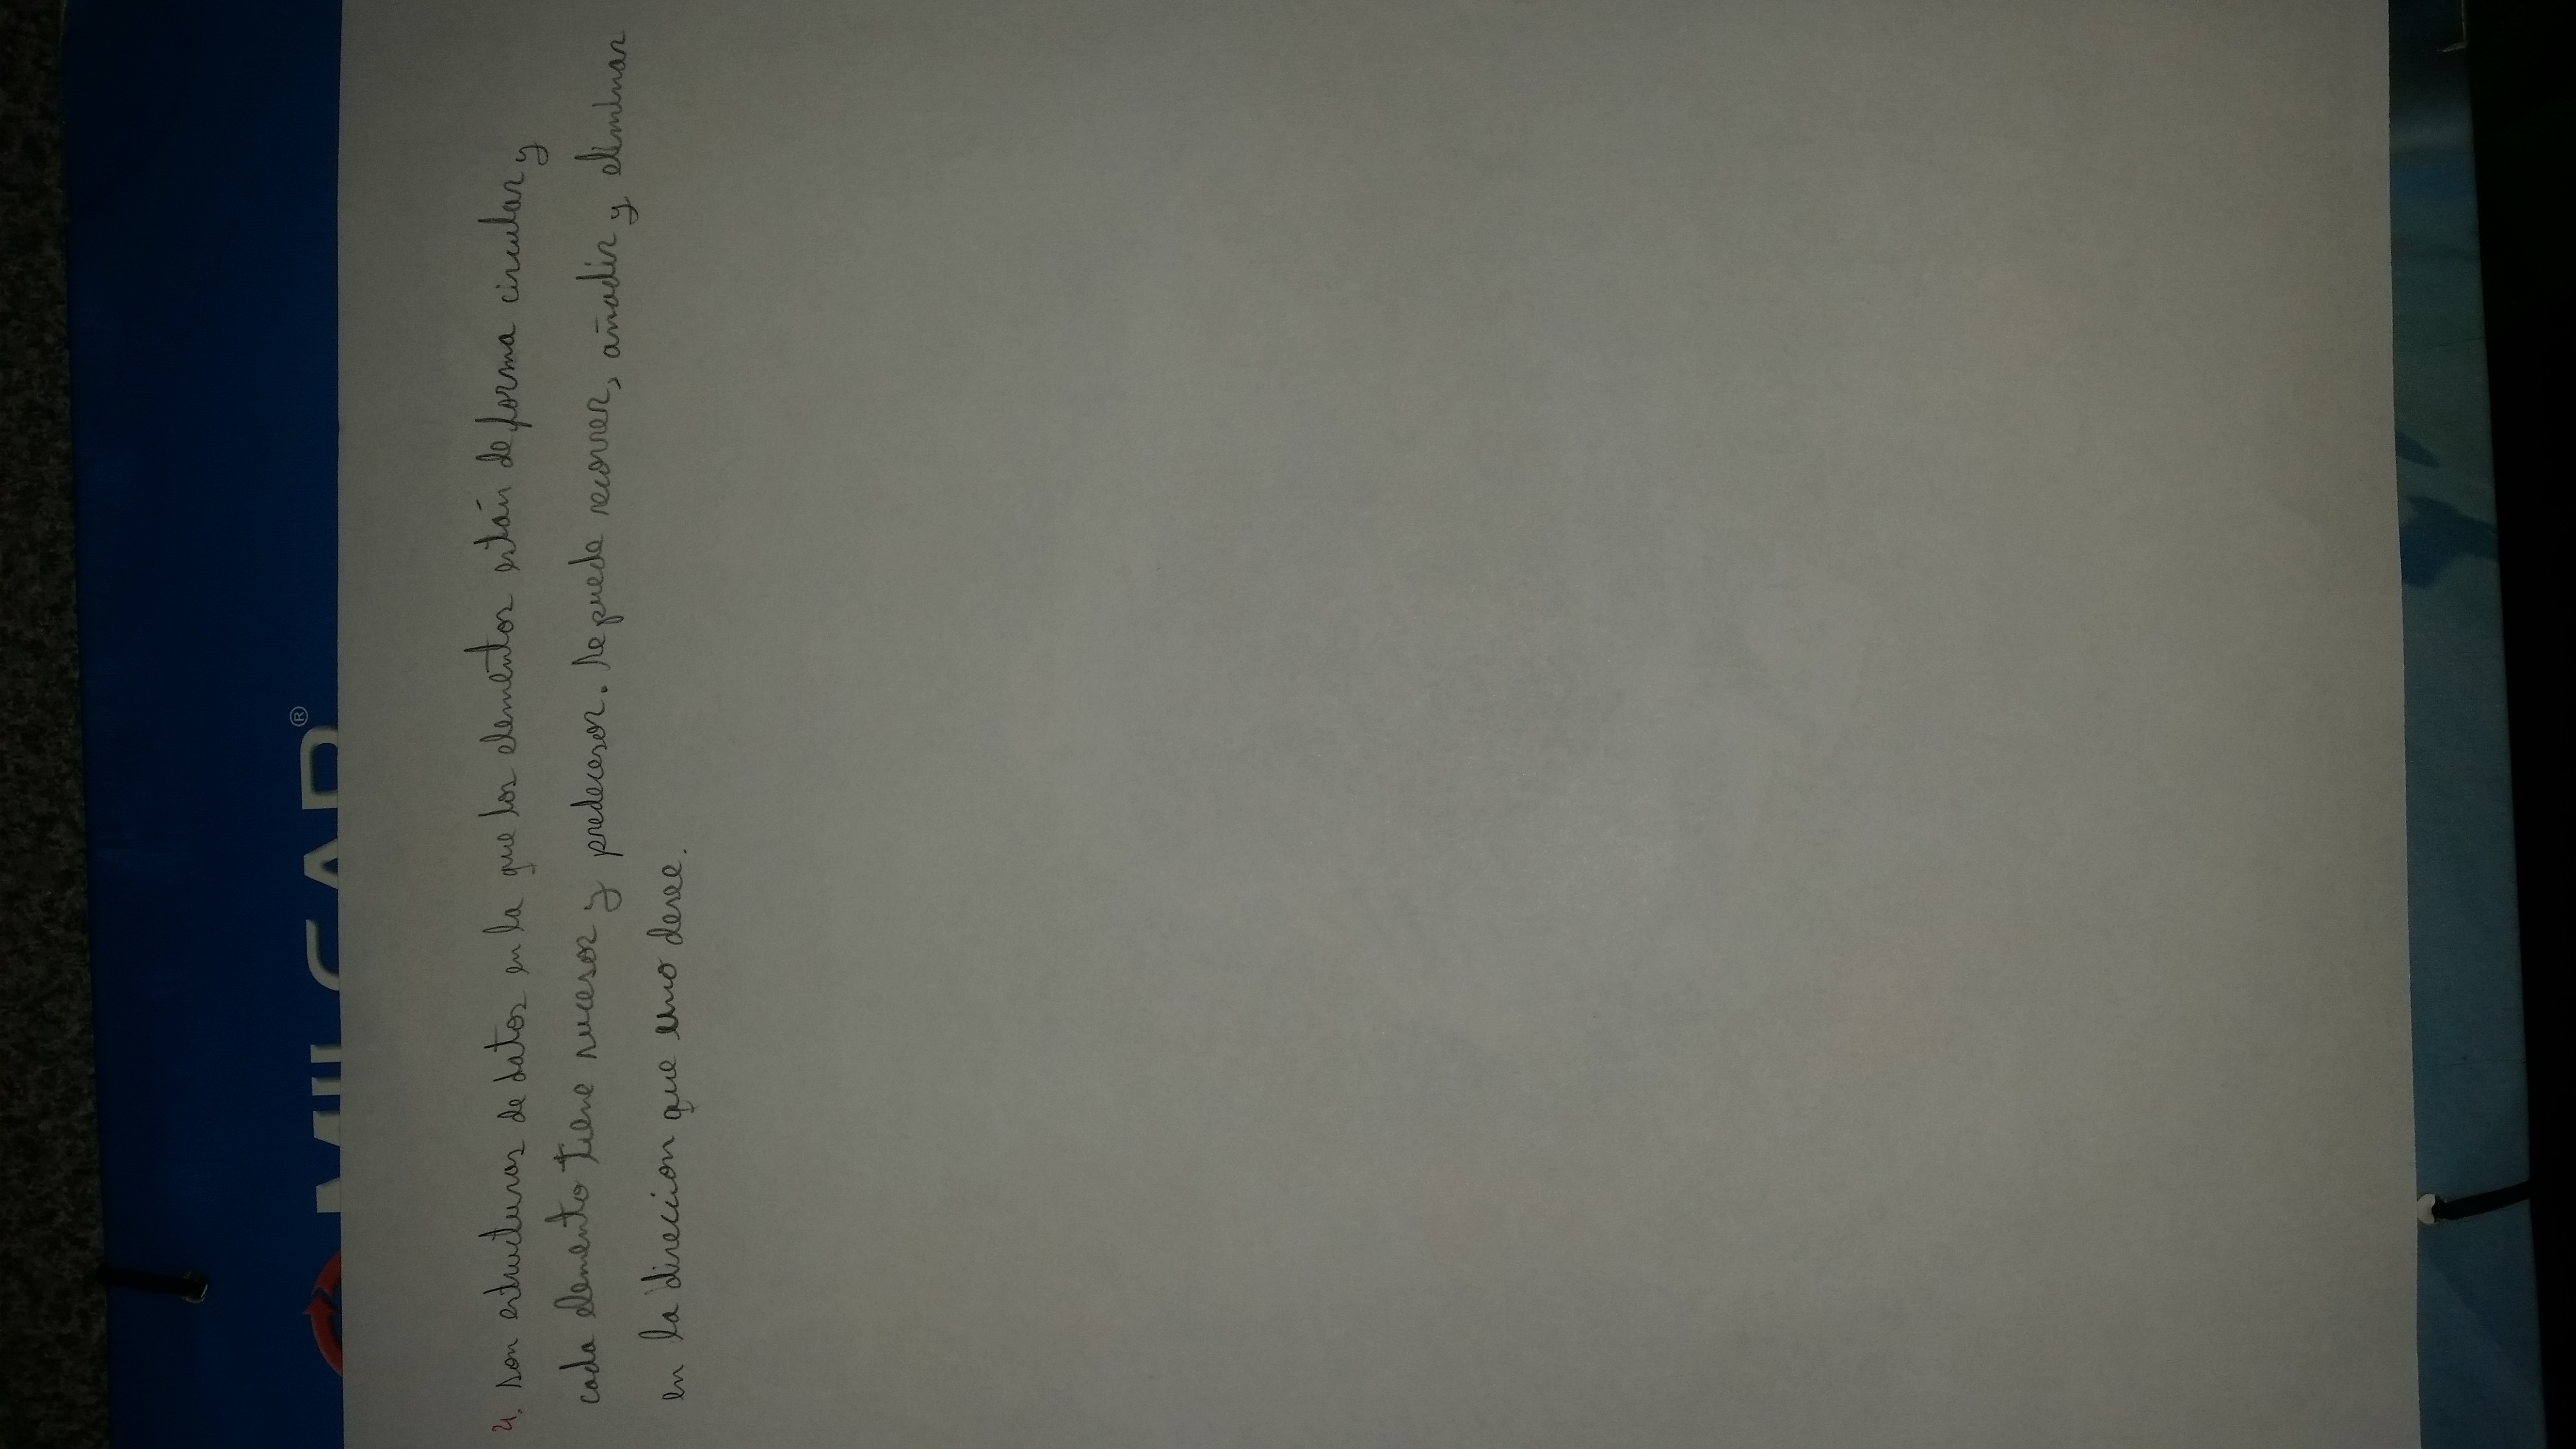 MILCAR®
4. Son estructuras de datos en la que los elementos están de forma circular y
cada elemento tiene sucesor y predecesor. Se puede recorrer, añadir y eliminar
en la direccion que uno desee.